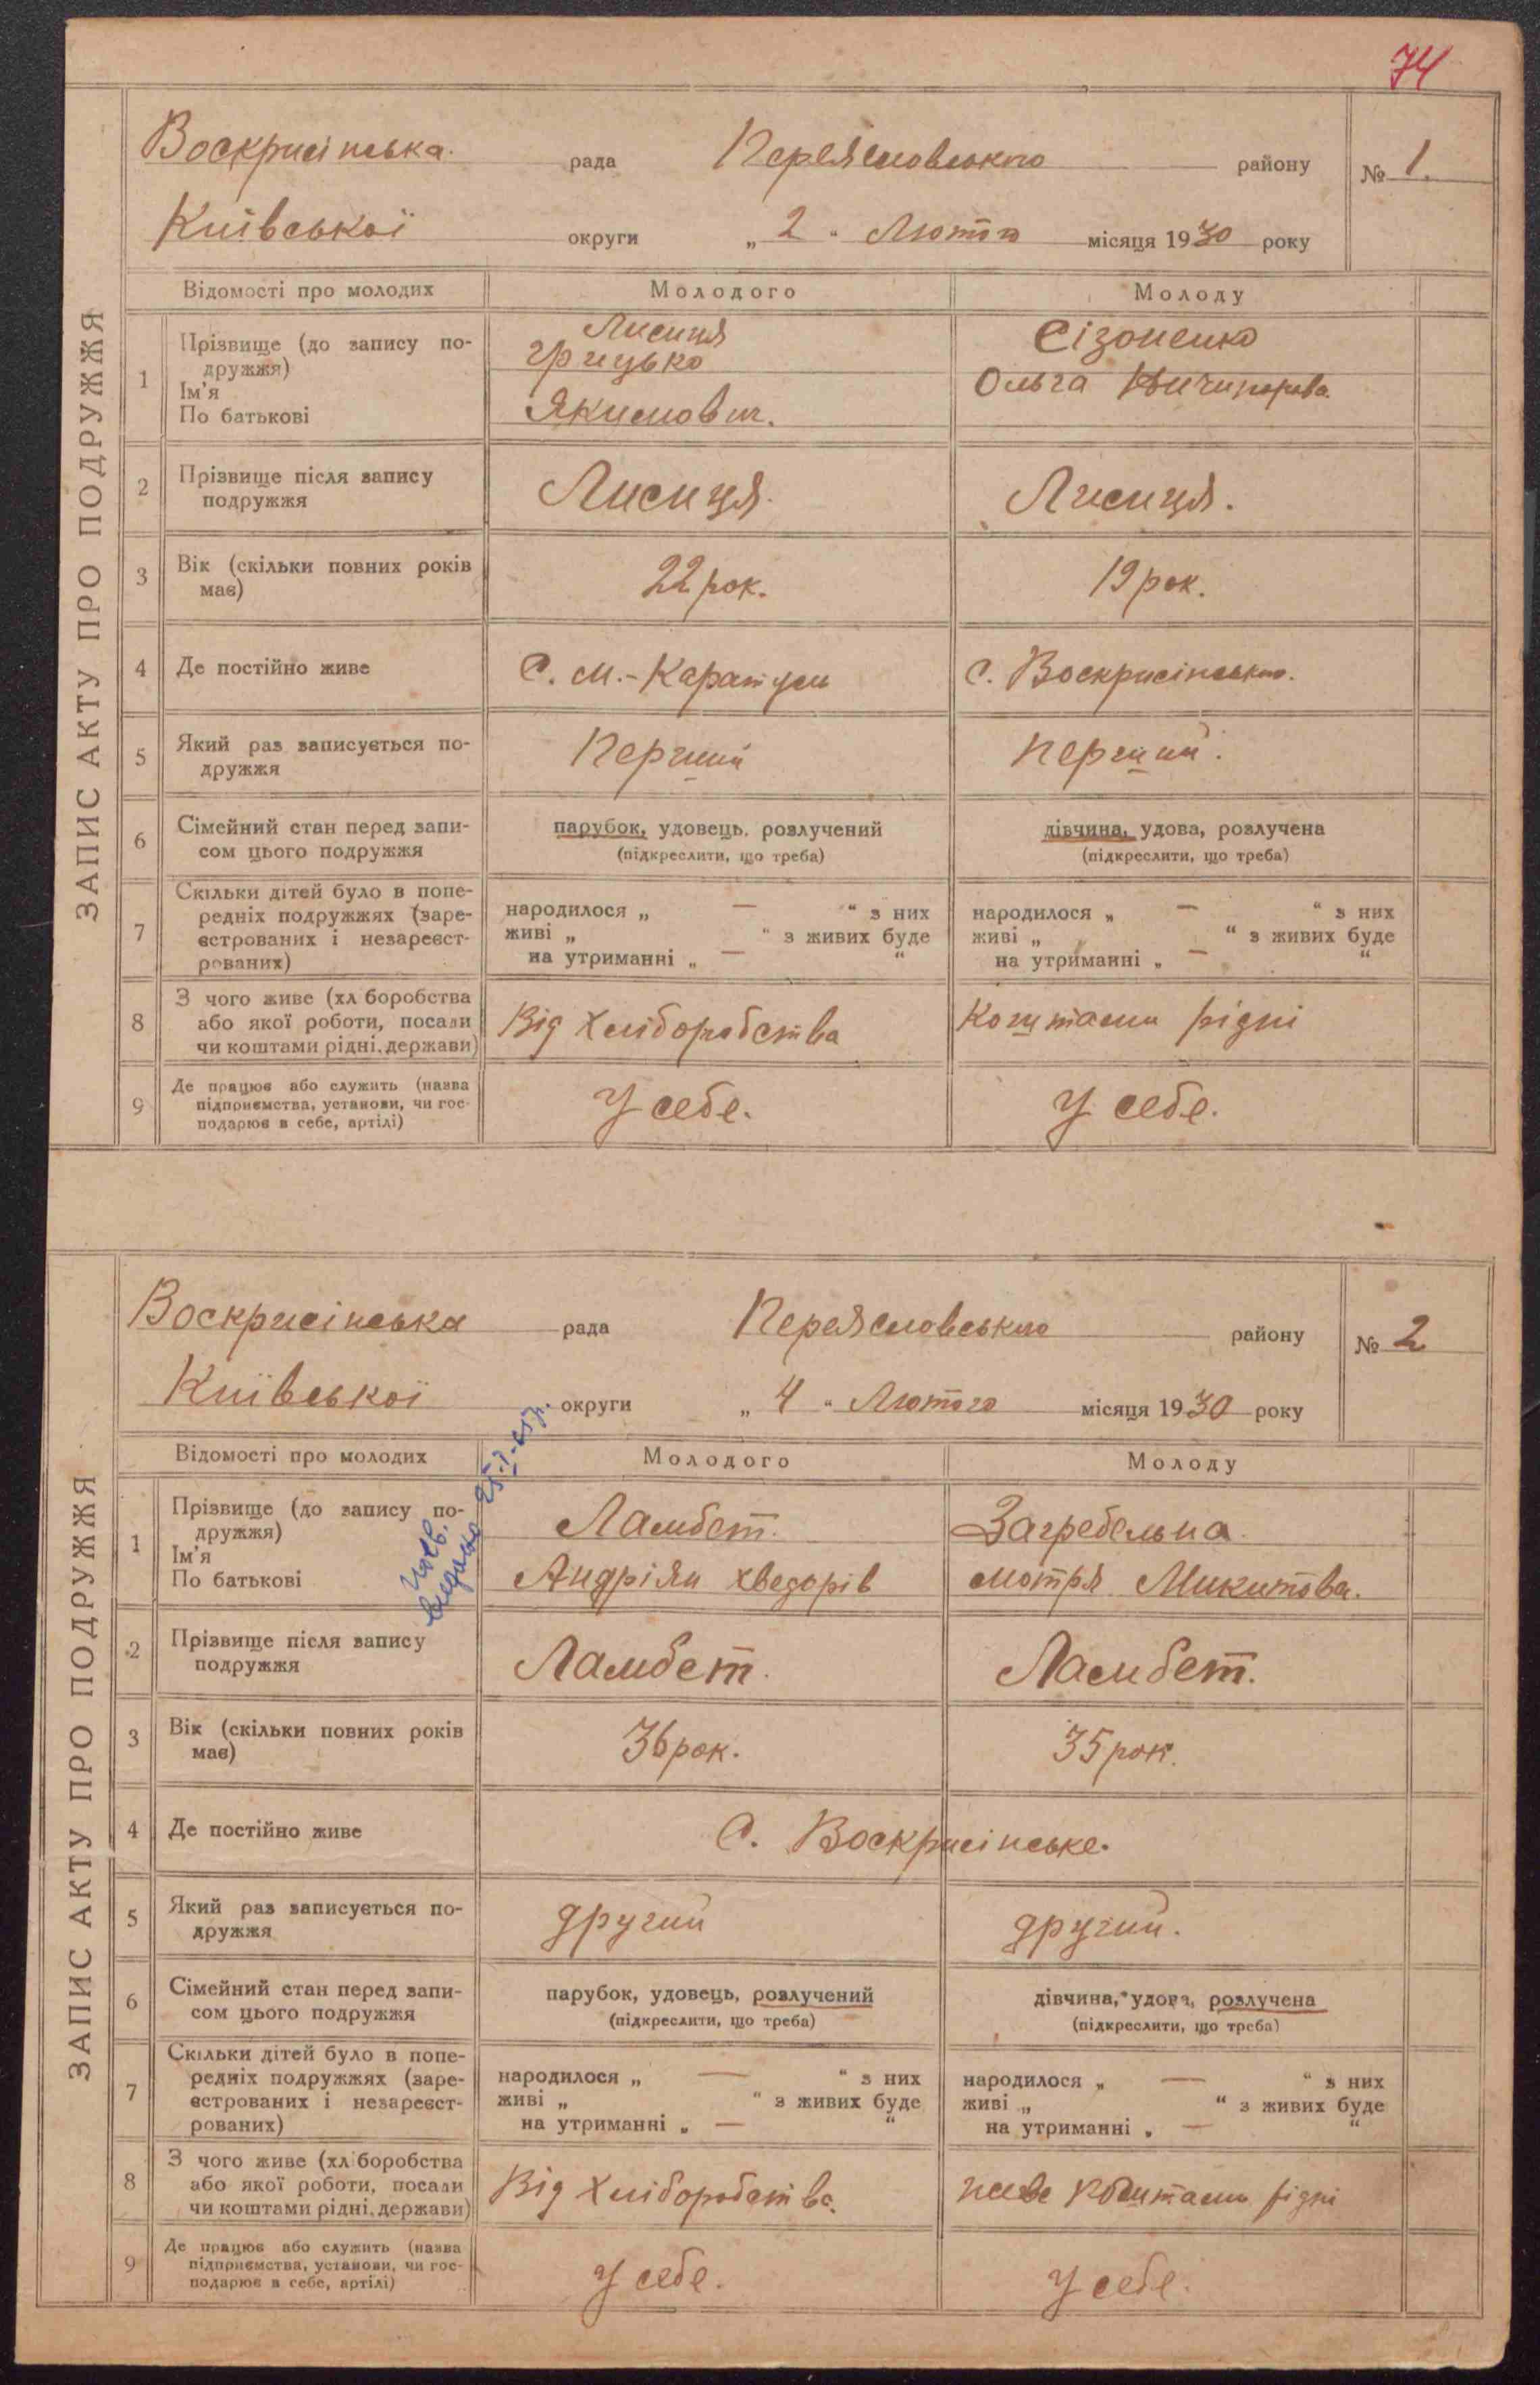 74
ЗАПИС АКТУ ПРО ПОДРУЖЖЯ
Воскрисінська рада Переясловського району № 1.
Київської округи „ 2 “ Лютого місяця 1930 року
Відомості про молодих Молодого Молоду
1 Прізвище (до запису по- Лисиця Сізоненко
дружжя) Грицько
Ім'я Ольга Ничипорова.
По батькові Якимович.
2 Прізвище після запису Лисиця. Лисиця.
подружжя
3 Вік (скільки повних років 22 рок. 19 рок.
має)
4 Де постійно живе С. М.-Каратуль с. Воскрисінське.
5 Який раз записується по- Перший перший.
дружжя
6 Сімейний стан перед запи- парубок, удовець, розлучений дівчина, удова, розлучена
сом цього подружжя (підкреслити, що треба) (підкреслити, що треба)
7 Скільки дітей було в попе-
редніх подружжях (заре- народилося „ — “ з них народилося „ — “ з них
єстрованих і незареєст- живі „ “ з живих буде живі „ “ з живих буде
рованих) на утриманні „ — “ на утриманні „ — “
8 З чого живе (хліборобства
або якої роботи, посади Від Хліборобства Коштами рідні
чи коштами рідні, держави)
9 Де працює або служить (назва
підприємства, установи, чи гос- У себе. У себе.
подарює в себе, артілі)
ЗАПИС АКТУ ПРО ПОДРУЖЖЯ
Воскрисінська рада Переясловського району № 2
Київської округи „ 4 “ Лютого місяця 1930 року
Відомості про молодих Молодого Молоду
1 Прізвище (до запису по- Ламбет. Загребельна.
дружжя)
Ім'я Андріян Хведорів Мотря Микитова.
По батькові
2 Прізвище після запису Ламбет. Ламбет.
подружжя
3 Вік (скільки повних років 36 рок. 35 рок.
має)
4 Де постійно живе С. Воскрисінське.
5 Який раз записується по- другий другий.
дружжя
6 Сімейний стан перед запи- парубок, удовець, розлучений дівчина, удова, розлучена
сом цього подружжя (підкреслити, що треба) (підкреслити, що треба)
7 Скільки дітей було в попе-
редніх подружжях (заре- народилося „ — “ з них народилося „ — “ з них
єстрованих і незареєст- живі „ “ з живих буде живі „ “ з живих буде
рованих) на утриманні „ — “ на утриманні „ — “
8 З чого живе (хліборобства
або якої роботи, посади Від Хліборобства живе Коштами рідні
чи коштами рідні, держави)
9 Де працює або служить (назва
підприємства, установи, чи гос- У себе. У себе.
подарює в себе, артілі)